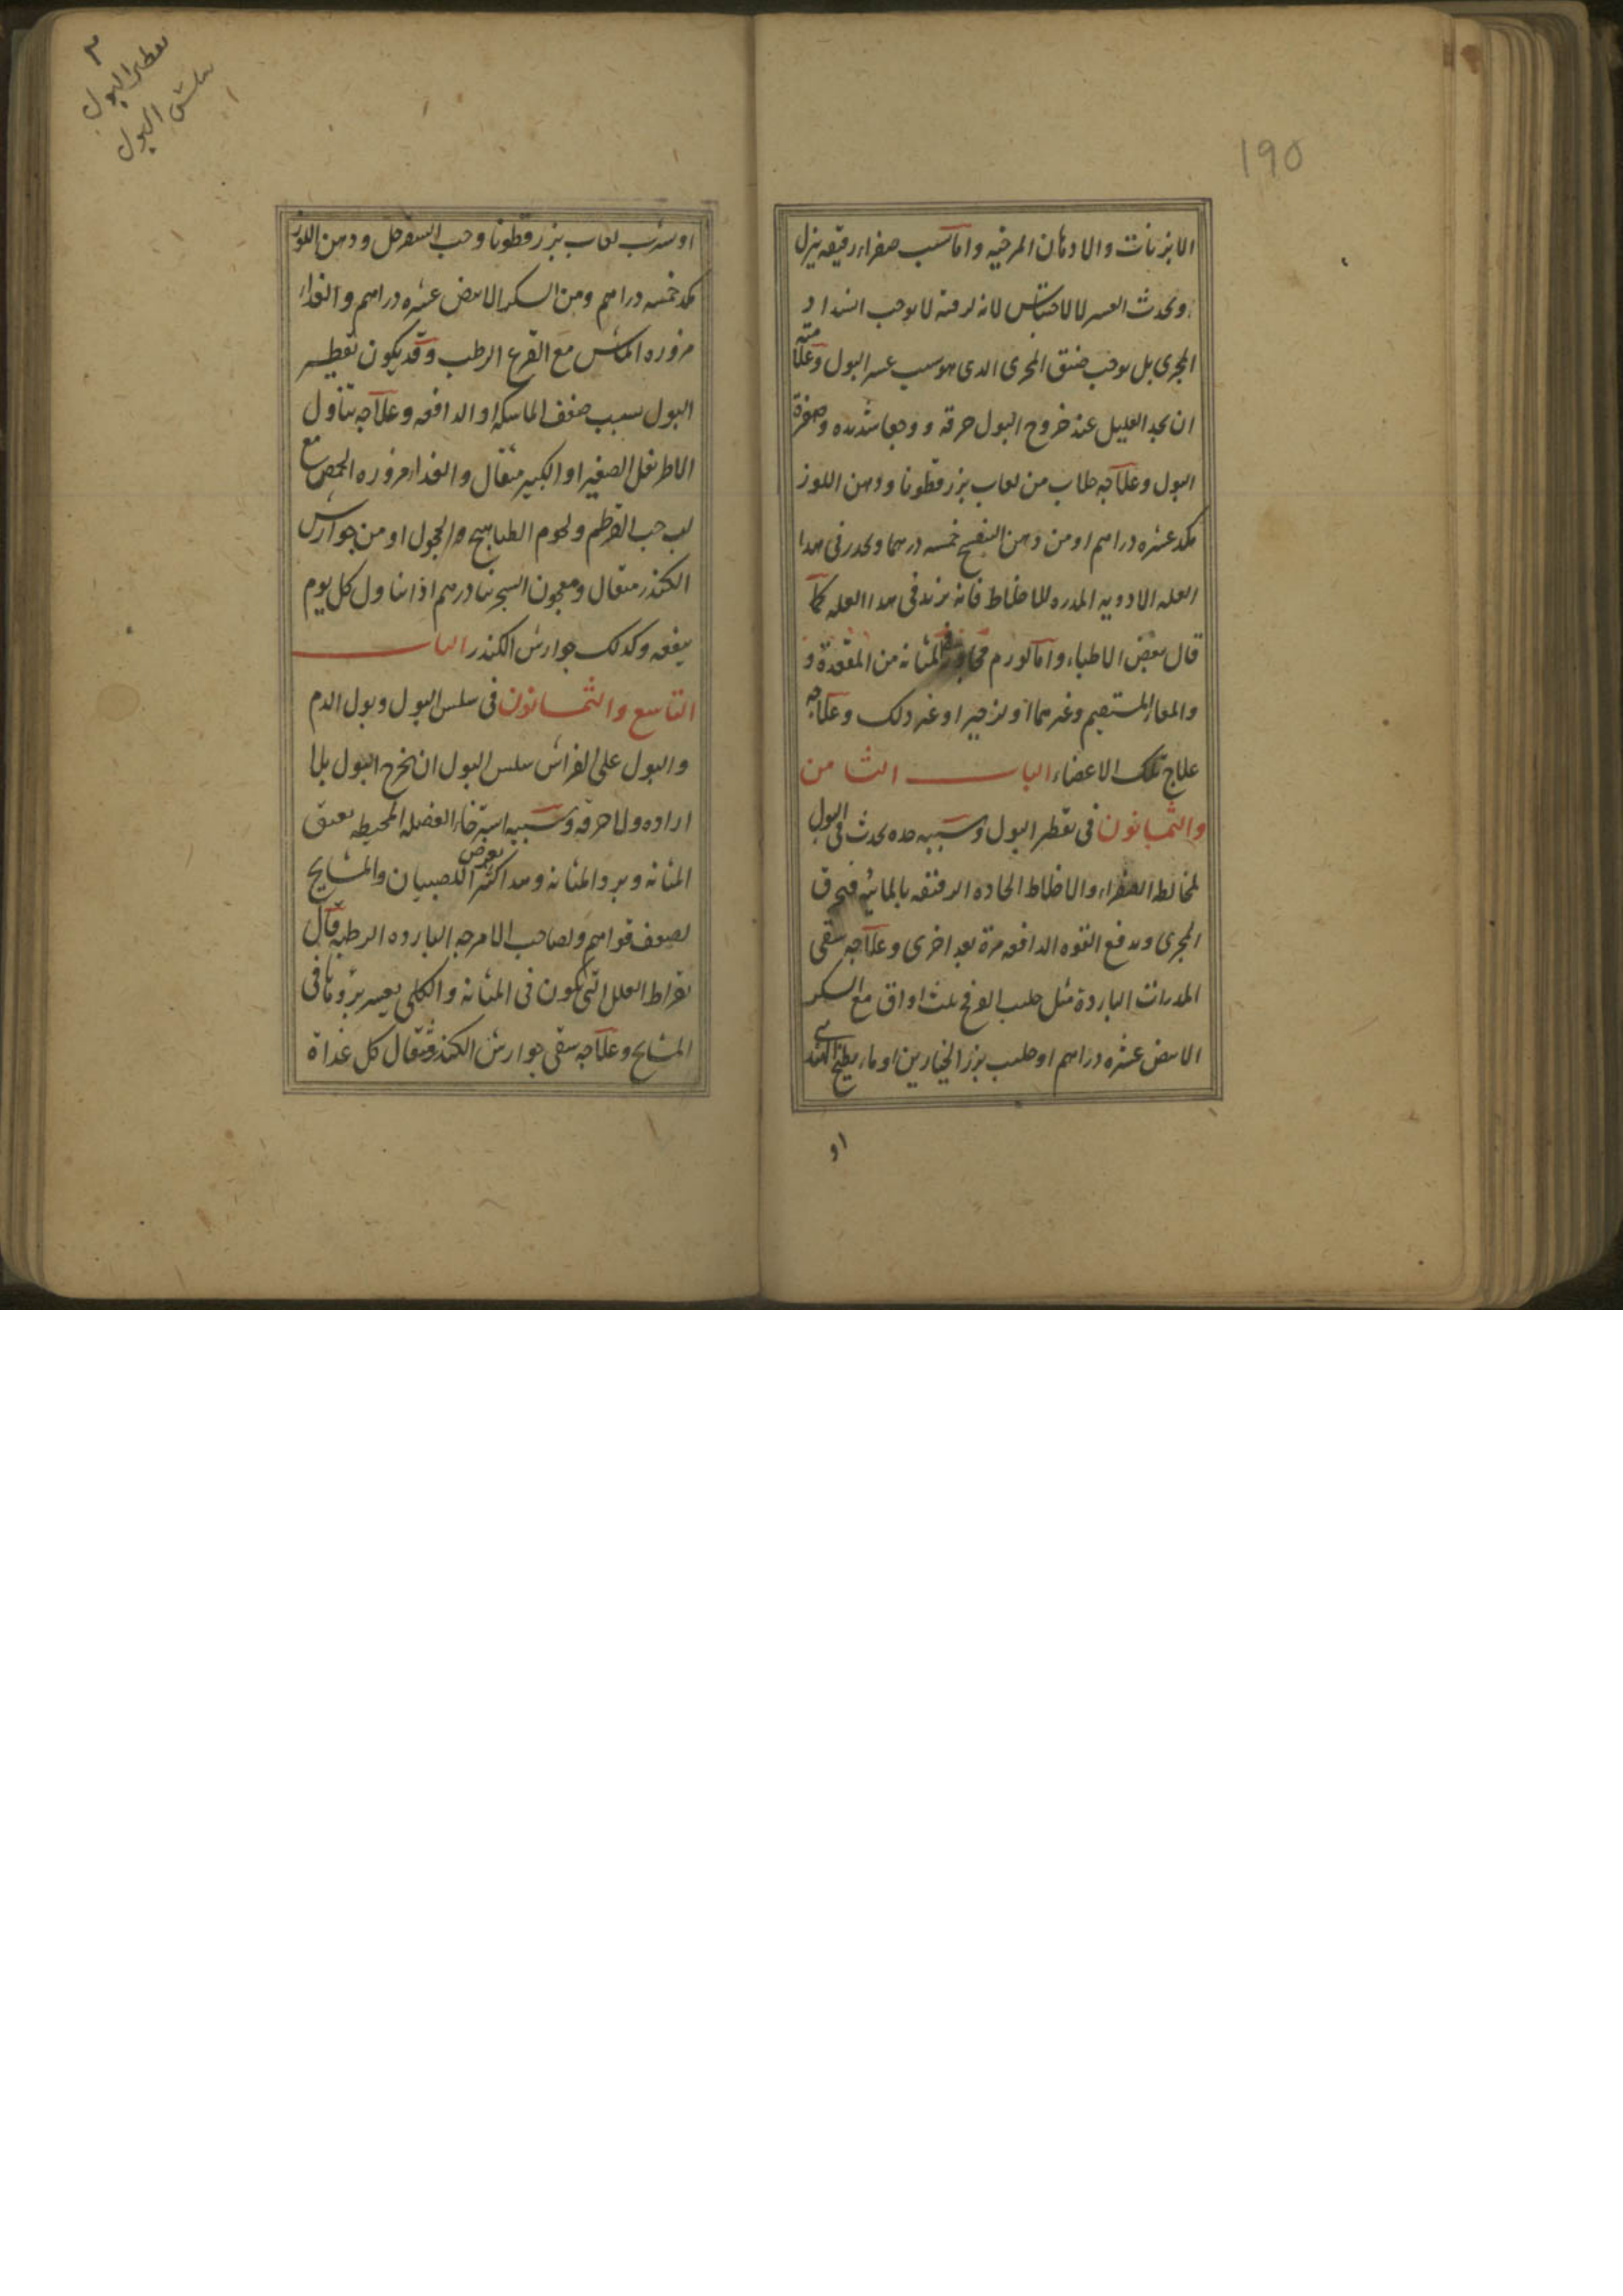 190
الابزنات والادهان المرخيه واما سبب صفراء رقيقه ينزل
ويحدث العسر لا للاحتباس لانه لرقته لا يوجب انسداد
المجرى بل يوجب ضيق المجرى الدى هو سبب عسر البول وعلامته
ان يجد العليل عند خروج البول حرقة ووجعا شديده وصفرة
البول وعلاجه جلاب من لعاب بزرقطونا ودهن اللوز
مكد عشره دراهم او من دهن البنفسج خمسه درهما ويحدر فى هدا
العله الادويه المدره للاخلاط فانه يزيد فى هدا العله كما
قال بعض الاطباء واما لورم فى المثانه من المقعدة و
والمعاء المستقيم وغيرهما او لزحير او غير دلك وعلاجه
علاج تلك الاعضاء الباب الثامن
والثمانون فى تقطر البول وسببه حده يحدث فى البول
لمخالطه الصفراء والاخلاط الحاده الرقيقه بالمائيه فيحرق
المجرى ويدفع القوه الدافعه مرة بعد اخرى وعلاجه سقى
المدرات الباردة مثل حليب الفرفخ ثلث اواق مع السكر
الابيض عشره دراهم او حليب بزر الخيارين او ماء بطيخ الهندى
او
تقطير البول
سلس البول
او شرب لعاب بزرقطونا وحب السفرجل ودهن اللوز
مكد خمسه دراهم ومن السكر الابيض عشره دراهم والغداء
مزوره الماش مع القرع الرطب وقد يكون تقطير
البول سبب ضعف الماسكه او الدافعه وعلاجه تناول
الاطريفل الصغير او الكبير مثقال والغداء مزوره الحمص مع
لب حب القرطم ولحوم الطياهيج والحجول او من جوارش
الكندر مثقال ومعجون السجرينا درهم اذا تناول كل يوم
ينفعه وكدلك جوارش الكندر الباب
التاسع والثمانون فى سلس البول وبول الدم
والبول على الفراش سلس البول ان يخرج البول بلا
اراده ولا حرقه وسببه استرخاء العضله المحيطه بعنق
المثانه وبرد المثانه وهدا اكثر يعرض للصبيان والمشايخ
لضعف قواهم ولصاحب الامزجه البارده الرطبه قال
بقراط العلل التى تكون فى المثانه والكلى يعسر برؤها فى
المشايخ وعلاجه سقى جوارش الكندر مثقال كل غداة